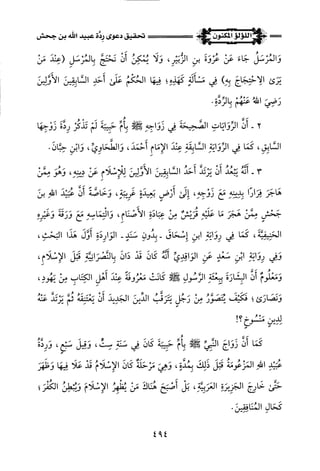 اللؤلؤ المكنون
تحقيق دعوى ردَّة عبيد الله بن جحش
والمُرْسَلُ جَاءَ عَنْ عُرْوَةَ بنِ الزُّبَيْرِ، وَلَا يُمْكِنُ أَنْ نَحْتَجَّ بِالمُرْسَلِ (عِنْدَ مَنْ
يَرَى الاحْتِجَاجَ بِهِ) فِي مَسْأَلَةٍ كَهَذِهِ؛ فِيهَا الحُكْمُ عَلَى أَحَدِ السَّابِقِينَ الأَوَّلِينَ
رَضِيَ اللهُ عَنْهُمْ بِالرِّدَّةِ.
٢ - أَنَّ الرِّوَايَاتِ الصَّحِيحَةَ فِي زَوَاجِهِ ﷺ بِأُمِّ حَبِيبَةَ لَمْ تَذْكُرْ رِدَّةَ زَوْجِهَا
السَّابِقِ، كَمَا فِي الرِّوَايَةِ السَّابِقَةِ عِنْدَ الإِمَامِ أَحْمَدَ، وَالطَّحَاوِيِّ، وَابْنِ حِبَّانَ.
٣ - أَنَّهُ يَبْعُدُ أَنْ يَرْتَدَّ أَحَدُ السَّابِقِينَ الأَوَّلِينَ لِلْإِسْلَامِ عَنْ دِينِهِ، وَهُوَ مِمَّنْ
هَاجَرَ فِرَارًا بِدِينِهِ مَعَ زَوْجِهِ، إِلَى أَرْضٍ بَعِيدَةٍ غَرِيبَةٍ، وَخَاصَّةً أَنَّ عُبَيْدَ اللهِ بنَ
جَحْشٍ مِمَّنْ هَجَرَ مَا عَلَيْهِ قُرَيْشٌ مِنْ عِبَادَةِ الأَصْنَامِ، وَالْتِمَاسِهِ مَعَ وَرَقَةَ وَغَيْرِهِ
الحَنِيفِيَّةَ، كَمَا فِي رِوَايَةِ ابنِ إِسْحَاقَ - بِدُونِ سَنَدٍ - الوَارِدَةِ أَوَّلَ هَذَا البَحْثِ،
وَفِي رِوَايَةِ ابنِ سَعْدٍ عَنِ الوَاقِدِيِّ أَنَّهُ كَانَ قَدْ دَانَ بِالنَّصْرَانِيَّةِ قَبْلَ الإِسْلَامِ،
وَمَعْلُومٌ أَنَّ البِشَارَةَ بِبِعْثَةِ الرَّسُولِ ﷺ كَانَتْ مَعْرُوفَةً عِنْدَ أَهْلِ الكِتَابِ مِنْ يَهُودٍ،
وَنَصَارَى؛ فَكَيْفَ يُتَصَوَّرُ مِنْ رَجُلٍ يَتَرَقَّبُ الدِّينَ الجَدِيدَ أَنْ يَعْتَنِقَهُ ثُمَّ يَرْتَدَّ عَنْهُ
لِدِينٍ مَنْسُوخٍ؟!
كَمَا أَنَّ زَوَاجَ النَّبِيِّ ﷺ بِأُمِّ حَبِيبَةَ كَانَ فِي سَنَةِ سِتٍّ، وَقِيلَ سَبْعٍ، وَرِدَّةُ
عُبَيْدِ اللهِ المَزْعُومَةُ قَبْلَ ذَلِكَ بِمُدَّةٍ، وَهِيَ مَرْحَلَةٌ كَانَ الإِسْلَامُ قَدْ عَلَا فِيهَا وَظَهَرَ
حَتَّى خَارِجَ الجَزِيرَةِ العَرَبِيَّةِ، بَلْ أَصْبَحَ هُنَاكَ مَنْ يُظْهِرُ الإِسْلَامَ وَيُبْطِنُ الكُفْرَ؛
كَحَالِ المُنَافِقِينَ.
٤٩٤